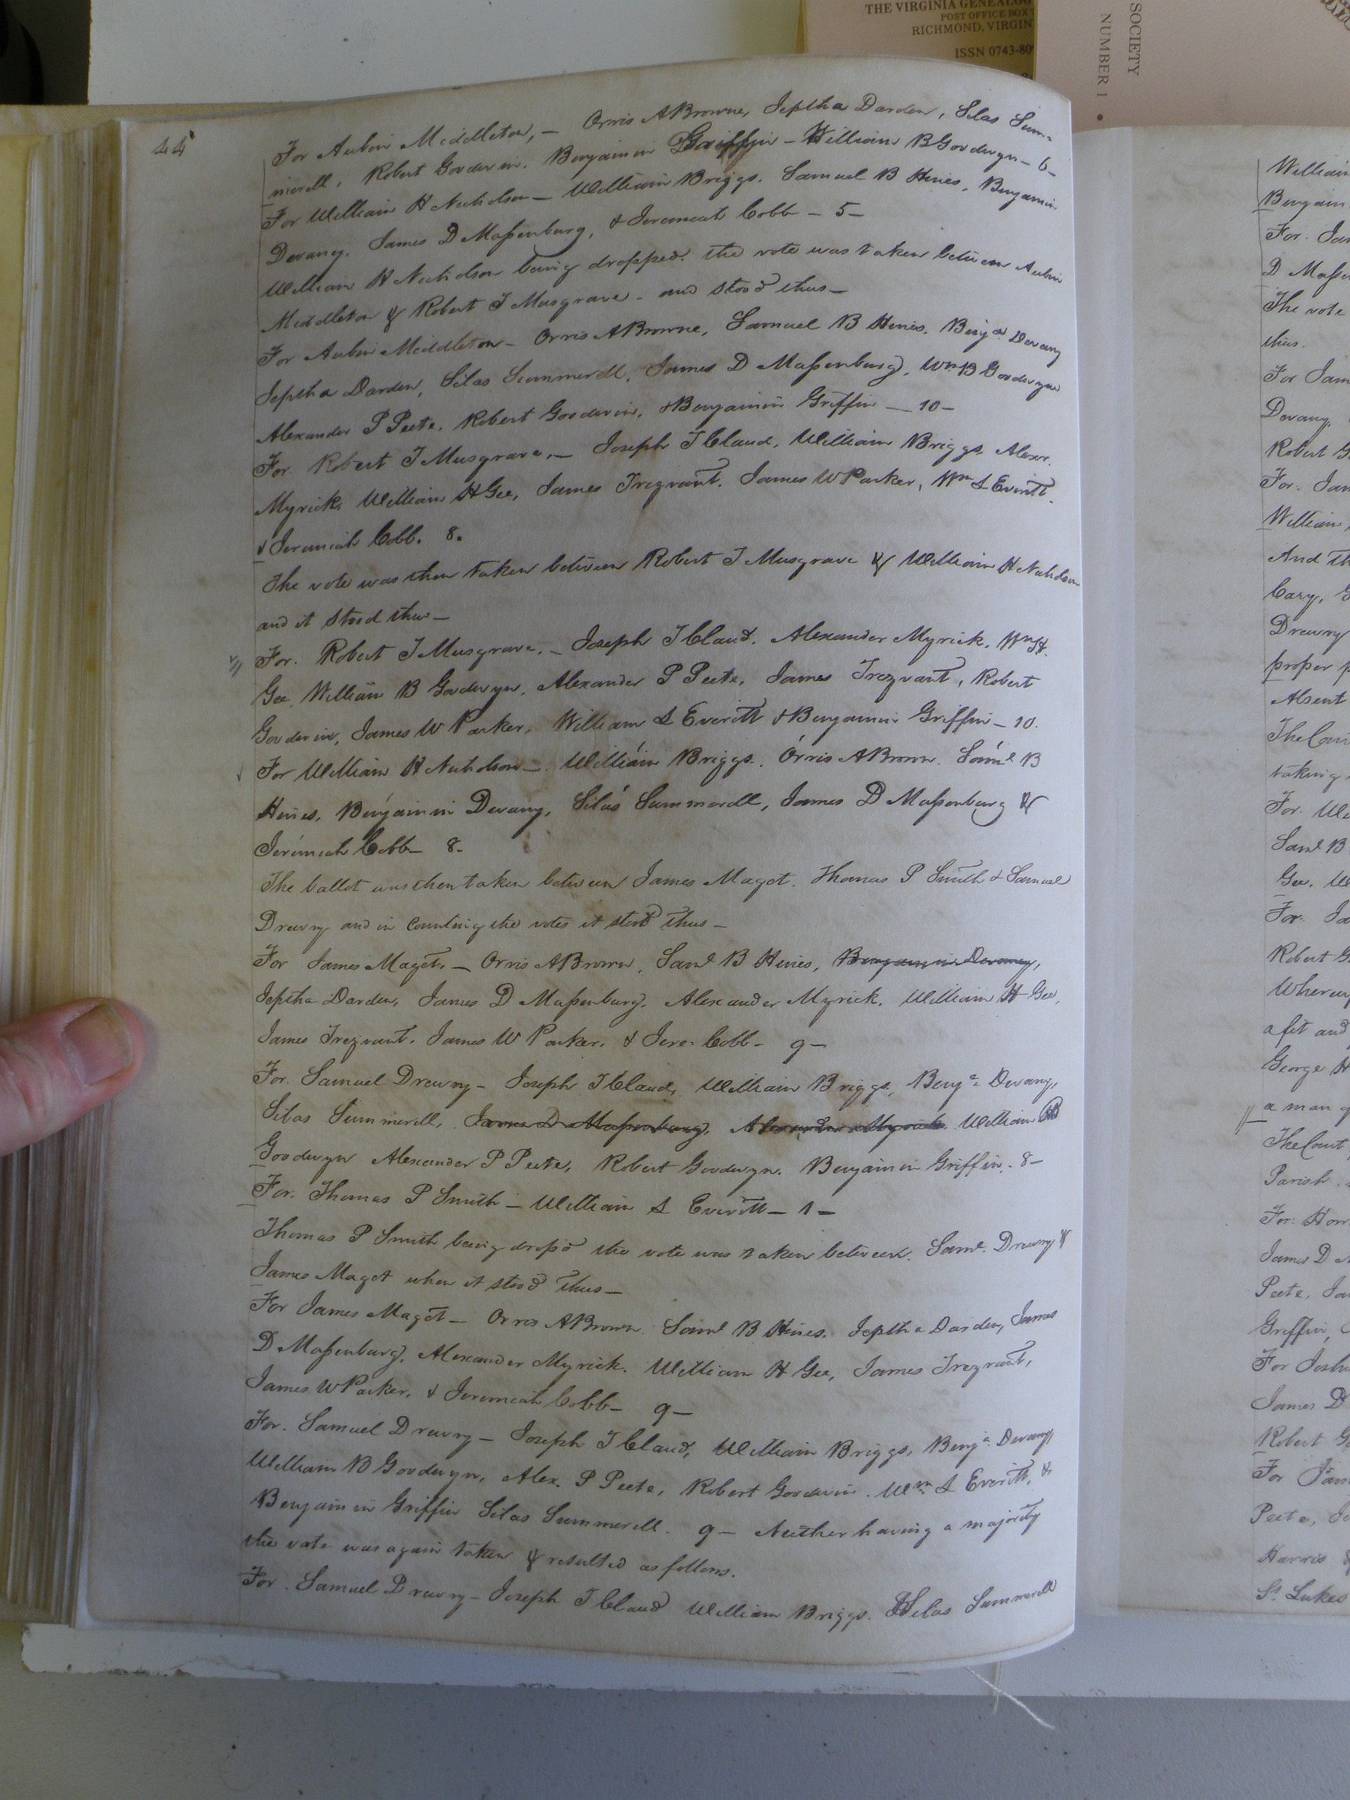 THE VIRGINIA GENEALOG
POST OFFICE BOX
RICHMOND, VIRGIN
ISSN 0743-809
SOCIETY
NUMBER 1
44
For Aubin Middleton, – Orris A Browne, Jeptha Darden, Silas Sum-
merell, Robert Goodwin, Benjamin Griffin – William B Goodwyn – 6 –
For William H Nicholson – William Briggs, Samuel B Hines, Benjamin
Devany, James D Massenburg, & Jeremiah Cobb – 5 –
William H Nicholson being dropped, the vote was taken between Aubin
Middleton & Robert T Musgrave – and stood thus –
For Aubin Middleton – Orris A Browne, Samuel B Hines, Benjn Devany
Jeptha Darden, Silas Summerell, James D Massenburg, Wm B Goodwyn
Alexander P Peete, Robert Goodwin, & Benjamin Griffin — 10 –
For Robert T Musgrave, – Joseph T Claud, William Briggs, Alexr.
Myrick, William H Gee, James Trezvant, James W Parker, Wm S Everitt.
& Jeremiah Cobb. 8.
The vote was then taken between Robert T Musgrave & William H Nicholson
and it stood thus –
For. Robert T Musgrave, – Joseph T Claud, Alexander Myrick, Wm H.
Gee, William B Goodwyn, Alexander P Peete, James Trezvant, Robert
Goodwin, James W Parker, William S Everitt & Benjamin Griffin – 10.
For William H Nicholson – William Briggs, Orris A Brown, Saml B
Hines, Benjamin Devany, Silas Summerell, James D Massenburg &
Jeremiah Cobb – 8 –
The ballot was then taken between James Maget, Thomas P Smith & Samuel
Drewry and in counting the votes it stood thus –
For James Maget, – Orris A Brown, Saml B Hines, Benjamin Devany,
Jeptha Darden, James D Massenburg, Alexander Myrick, William H Gee,
James Trezvant, James W Parker, & Jere. Cobb – 9 –
For. Samuel Drewry – Joseph T Claud, William Briggs, Benja Devany,
Silas Summerell, James D Massenburg, Alexander Myrick, William B
Goodwyn Alexander P Peete, Robert Goodwyn, Benjamin Griffin – 8 –
For. Thomas P Smith – William S Everitt – 1 –
Thomas P Smith being dropd the vote was taken between Saml. Drewry &
James Maget when it stood thus –
For James Maget – Orris A Brown Saml B Hines, Jeptha Darden, James
D Massenburg, Alexander Myrick, William H Gee, James Trezvant,
James W Parker, & Jeremiah Cobb – 9 –
For. Samuel Drewry – Joseph T Claud, William Briggs, Benja Devany,
William B Goodwyn, Alex. P Peete, Robert Goodwin, Wm S Everitt, &
Benjamin Griffin Silas Summerell. 9 – Neither having a majority
the vote was again taken & resulted as follows.
For. Samuel Drewry – Joseph T Claud William Briggs. Silas Summerell
William
Benjam
For. Jam
D Masse
The vote
thus.
For Jam
Devany,
Robert G
For. Jam
William
And th
Cary,
Drewry
proper p
Absent
The Cou
taking
For. Wi
Saml B
Gee, W
For. Ja
Robert G
Whereup
a fit and
George H
a man
The Court
Parish
For. Hor
James D
Peete, Ja
Griffin,
For Josh
James D
Robert G
For Jam
Peete, J
Harris &
St. Lukes